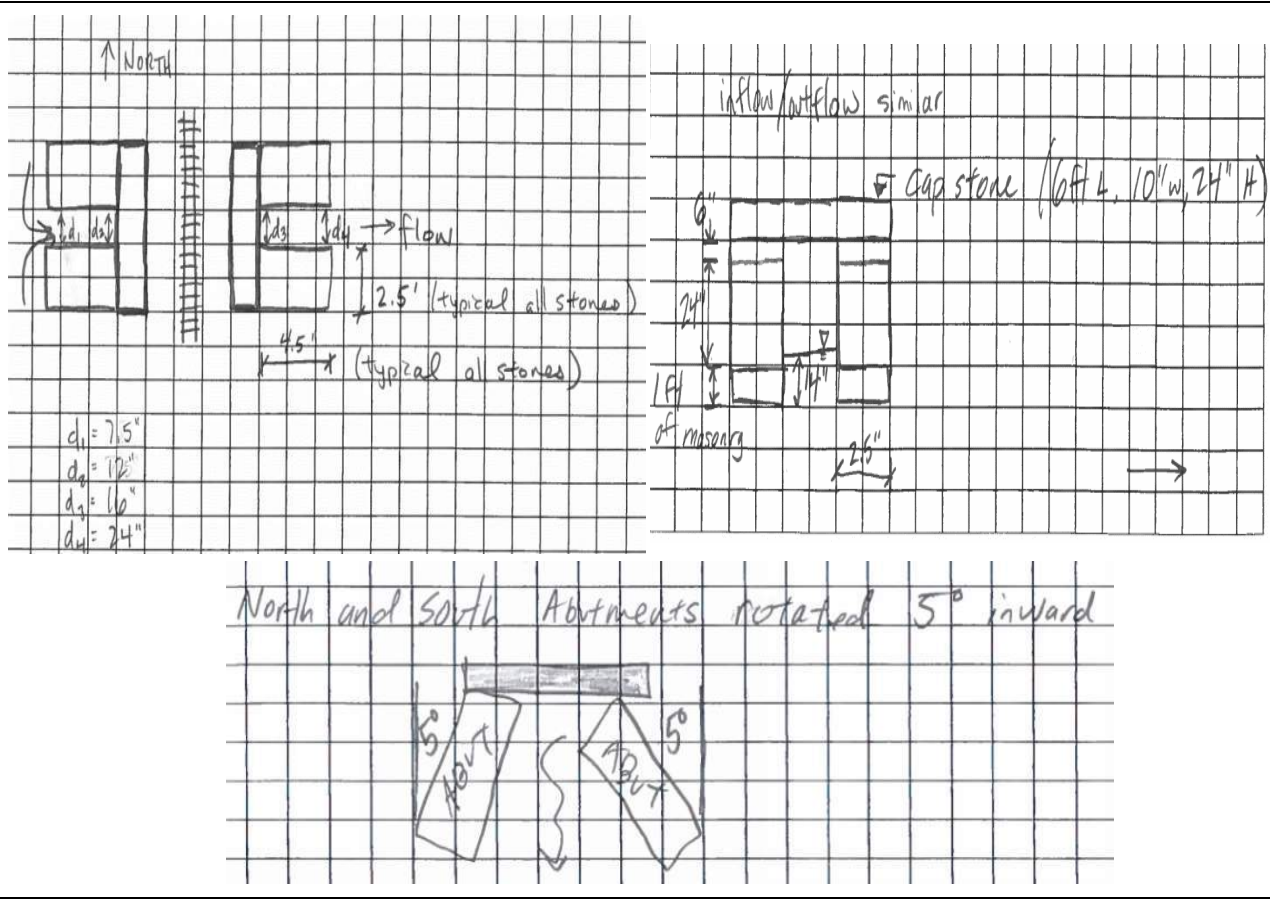 ↑ NORTH
d1 d2
d3 d4 → flow
2.5' (typical all stones)
4.5'
(typical all stones)
d1 = 7.5"
d2 = 12"
d3 = 16"
d4 = 24"
inflow/outflow similar
Cap stone (6ft L, 10"w, 24" H)
6"
24"
14"
1ft
of masonry
2.5"
North and South Abutments rotated 5° inward
5°
5°
ABUT
ABUT